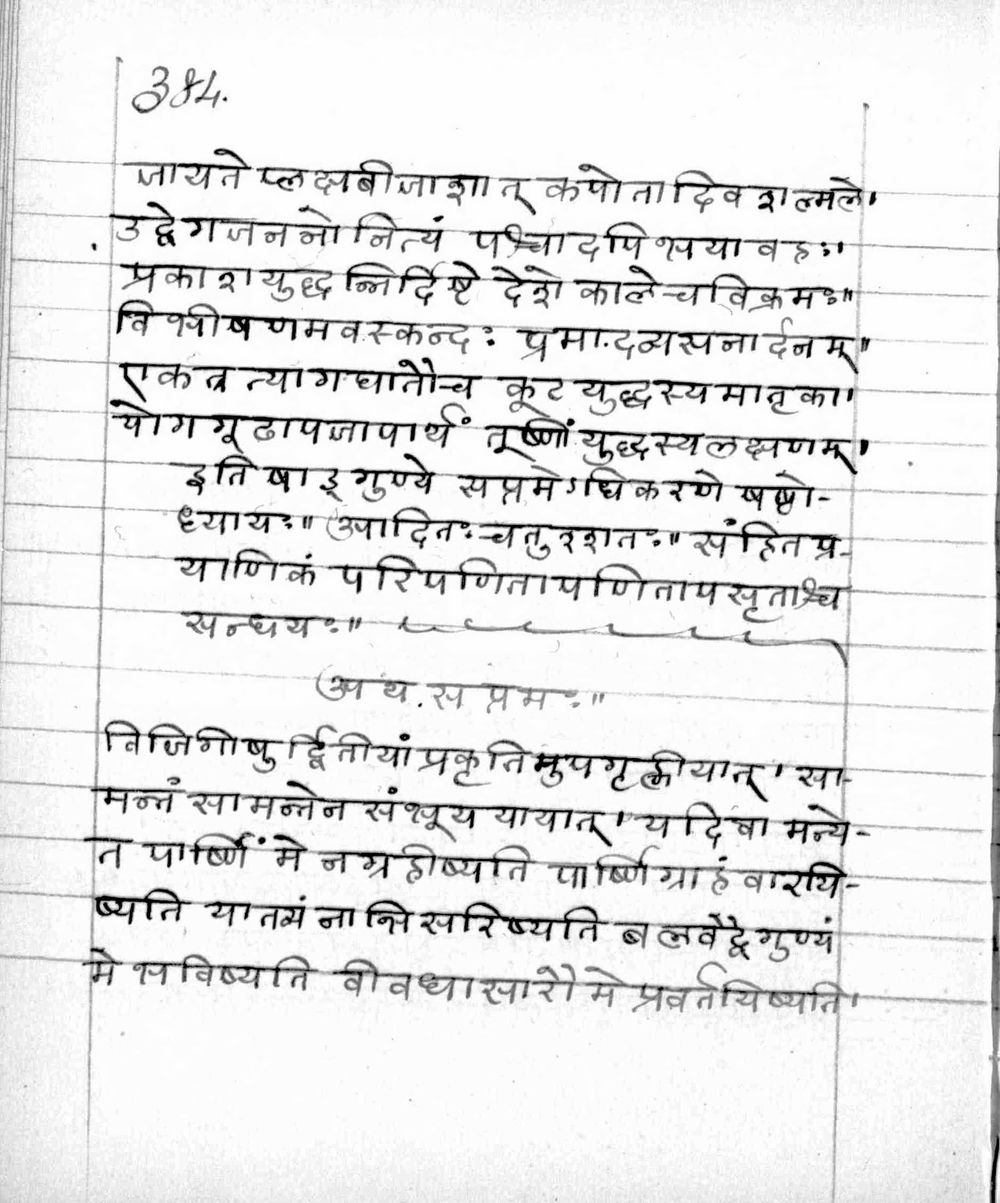 384.
जायते प्लक्षबीजाशात् कपोतादिव शल्मले।
उद्वेगजननो नित्यं पश्चादपि भयावहः॥
प्रकाशयुद्धन्निर्दिष्टे देशे काले च विक्रमः॥
विभीषणमवस्कन्दः प्रमादव्यसनार्दनम्॥
एकत्र त्यागघातौ च कूटयुद्धस्य मातृका।
योगगूढापजापार्थं तूष्णीं युद्धस्य लक्षणम्।
इति षाड्गुण्ये सप्तमेऽधिकरणे षष्ठो-
ध्यायः॥ आदितः चतुश्शतः॥ संहितप्र-
याणिकं परिपणितापणितापसृताश्च
सन्धयः॥
अथ सप्तमः॥
विजिगीषुर्द्वितीयां प्रकृतिमुपगृह्णीयात्। सा-
मन्तं सामन्तेन संभूय यायात्। यदि वा मन्ये-
त पार्ष्णिं मे न ग्रहीष्यति पार्ष्णिग्राहं वारयि-
ष्यति यातव्यं नाभिसरिष्यति बलवद्द्वैगुण्यं
मे भविष्यति वीवधासारौ मे प्रवर्तयिष्यति।